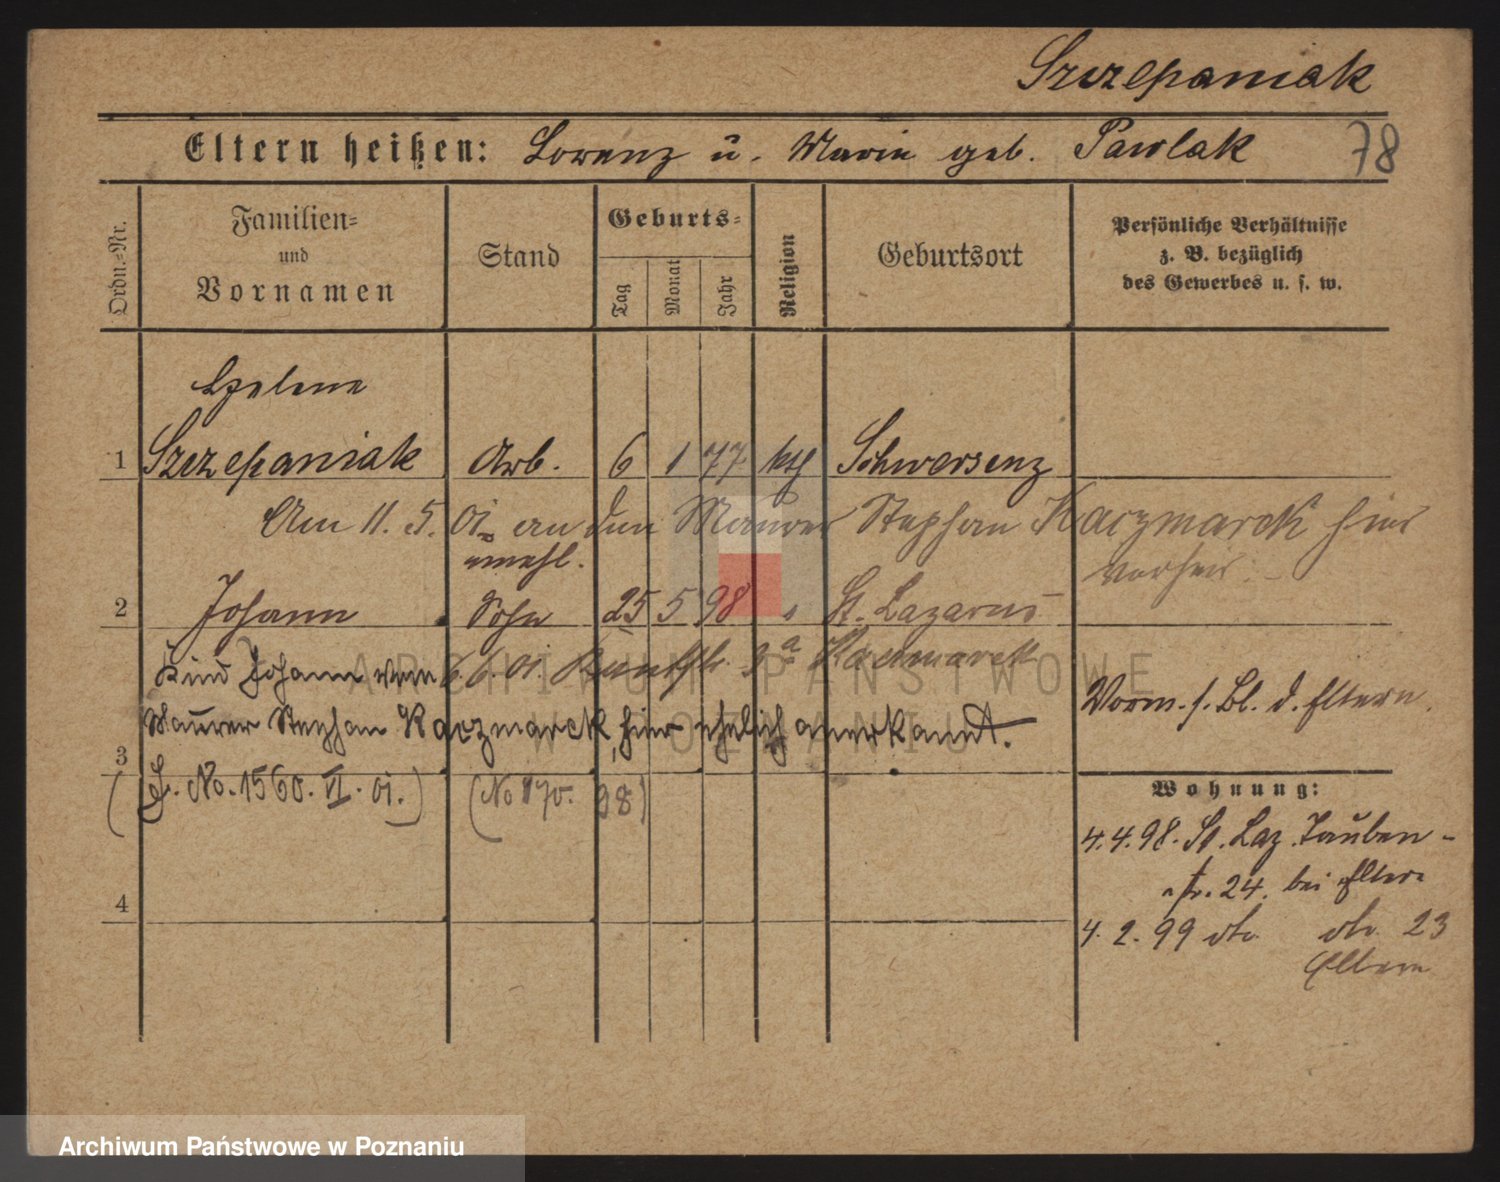 Szczepaniak
Eltern heißen: Lorenz u. Marie geb. Pawlak 78
Ordn.-Nr.
Familien-
und
Vornamen
Stand
Geburts-
Tag
Monat
Jahr
Religion
Geburtsort
Persönliche Verhältnisse
z. B. bezüglich
des Gewerbes u. s. w.
Helene
1 Szczepaniak Arb. 6 1 77 kth Schwersenz
Am 11. 5. 01. an den Maurer Stephan Kaczmarek hier
verheir.
unehl.
2 Johann Sohn 25 5 98 St. Lazarus
Kind Johann vom 6.6.01. Kaczmarek
Maurer Stephan Kaczmarek, hier ehelich anerkannt.
3
(J. No. 1560. VI. 01.) (No 170. 98)
Vorm. s. Bl. d. Eltern.
Wohnung:
4.4.98. St. Laz. Tauben-
str. 24. bei Eltern
4
4. 2. 99 dto. dto. 23
Eltern
ARCHIWUM PAŃSTWOWE
W POZNANIU
Archiwum Państwowe w Poznaniu